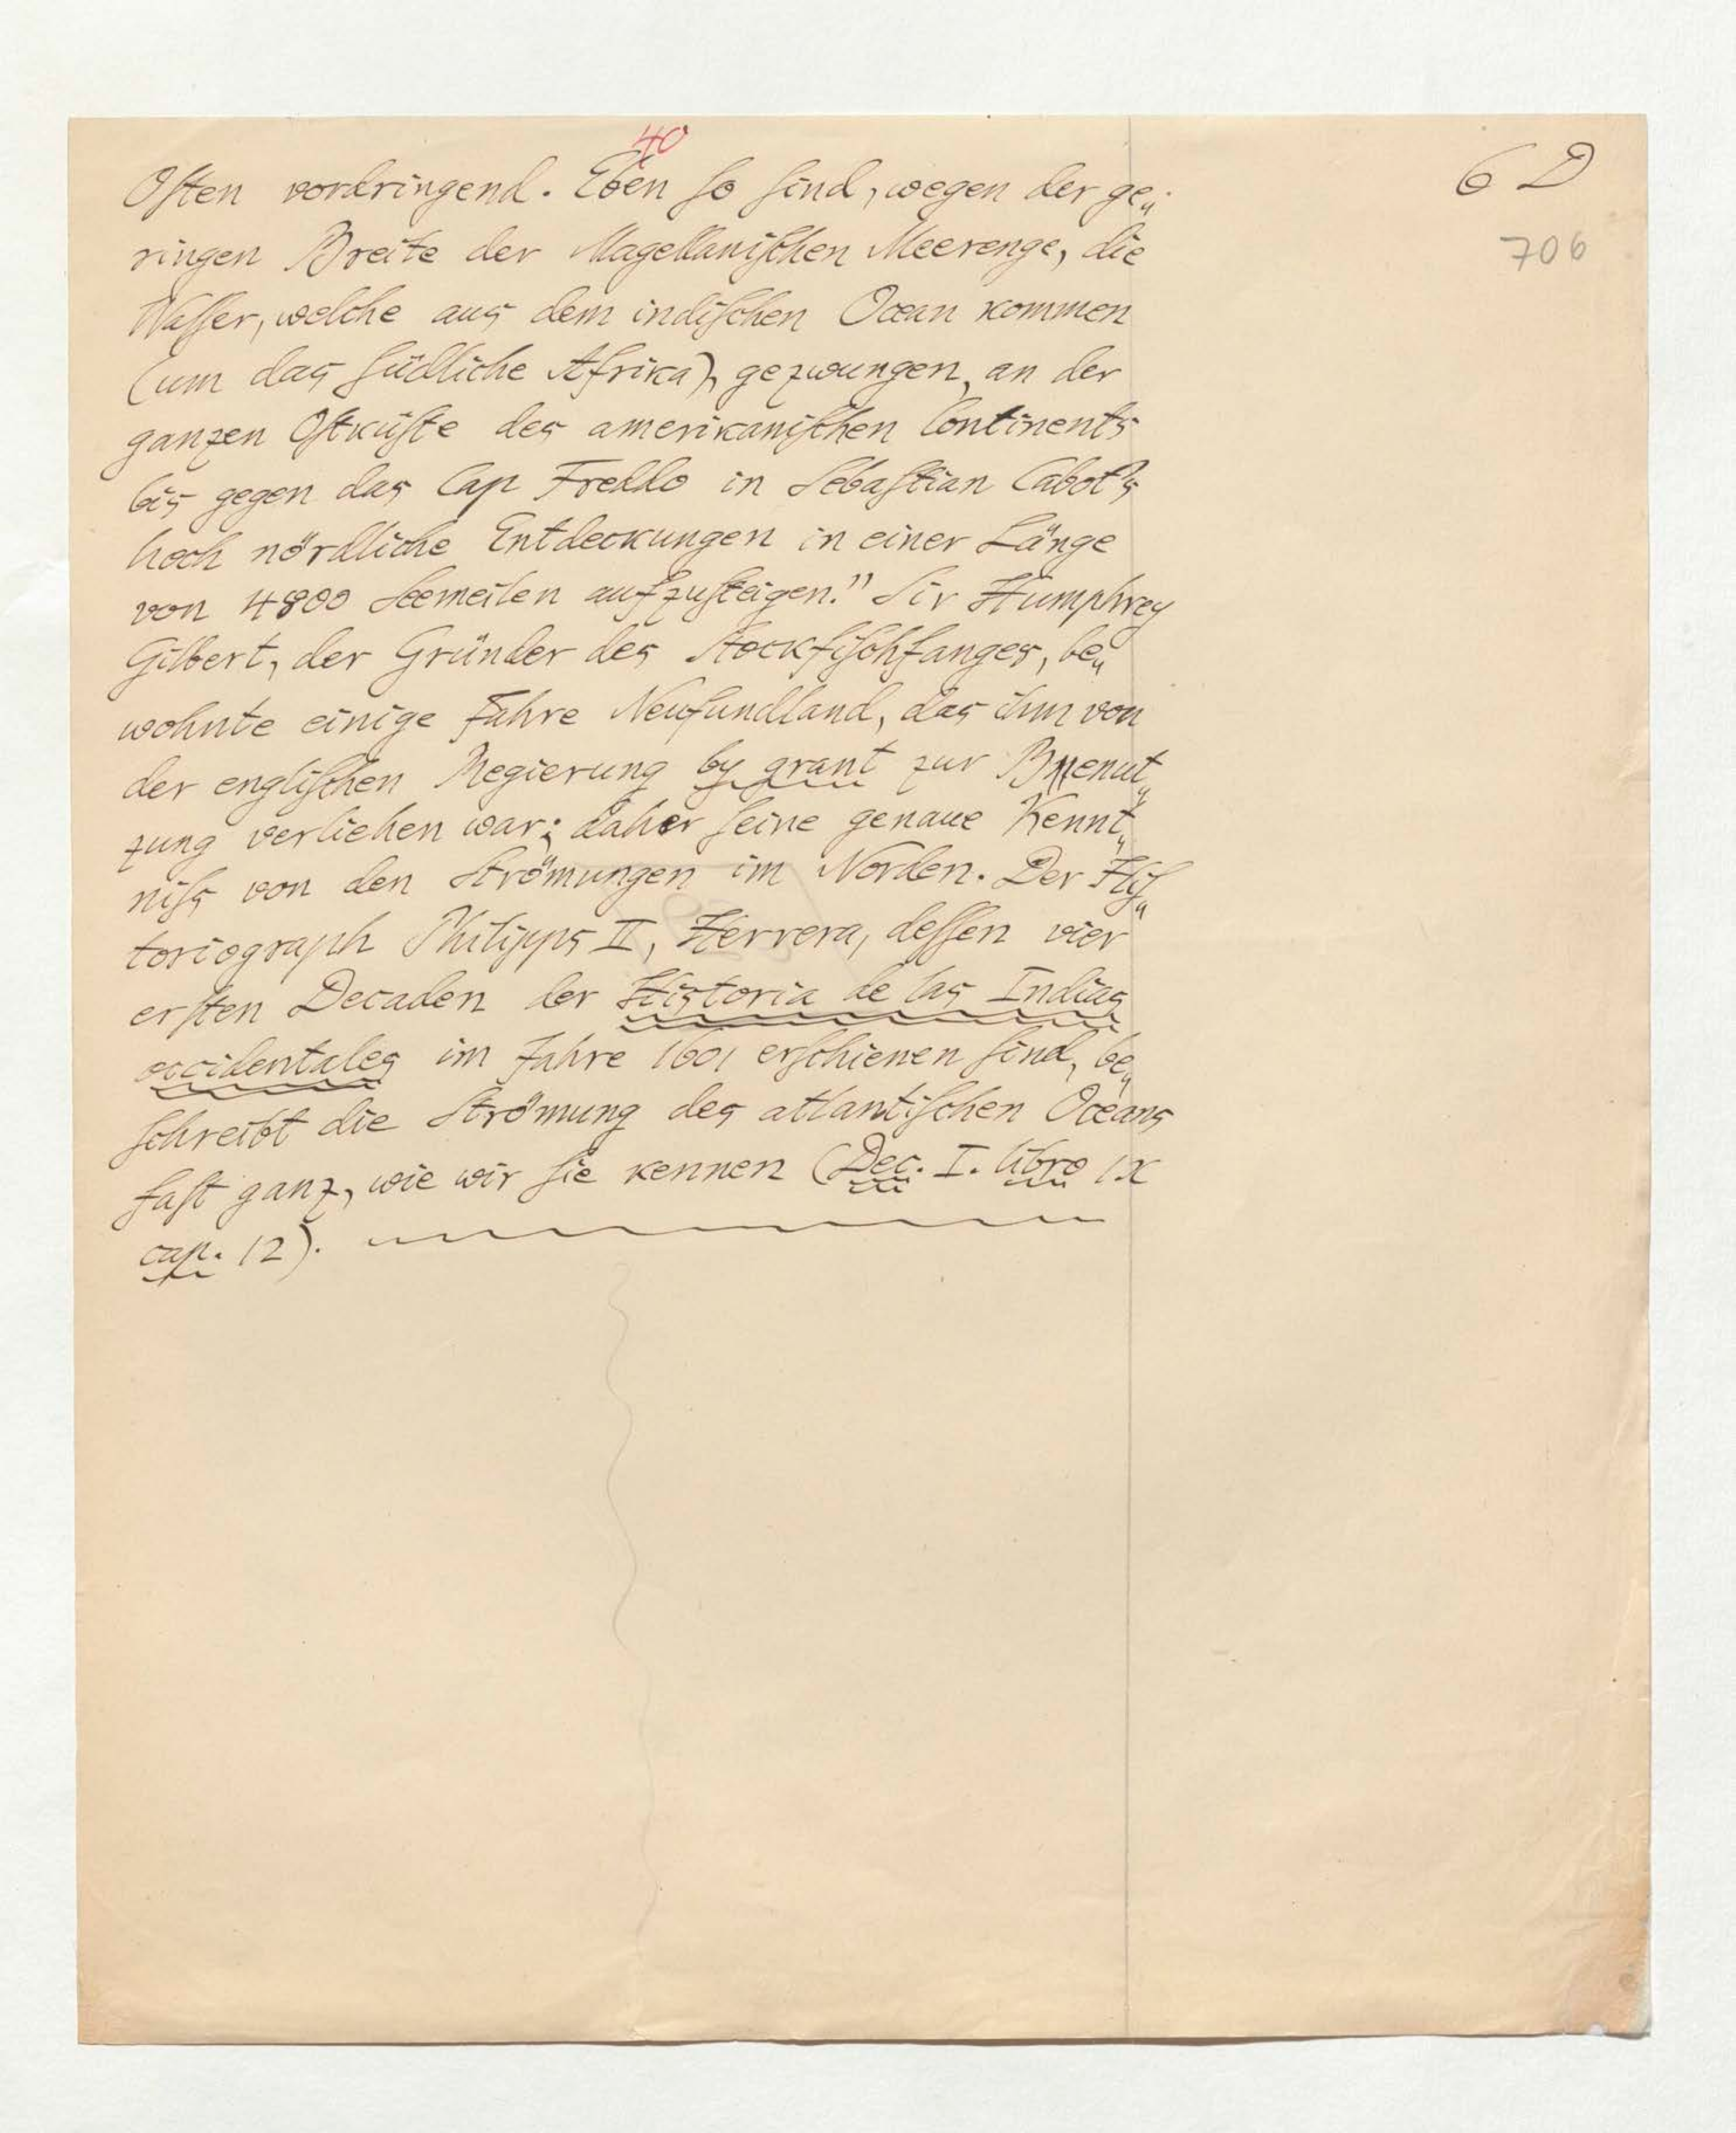 40
6 D
706
Oſten vordringend. Eben ſo ſind, wegen der ge„
ringen Breite der Magellaniſchen Meerenge, die
Waſſer, welche aus dem indiſchen Ocean kommen
(um das ſüdliche Afrika), gezwungen, an der
ganzen Oſtküſte des amerikaniſchen Continents
bis gegen das Cap Freddo in Sebaſtian Cabot's
hoch nördliche Entdeckungen in einer Länge
von 4800 Seemeilen aufzuſteigen." Sir Humphrey
Gilbert, der Gründer des Stockfiſchfanges, be„
wohnte einige Jahre Neufundland, das ihm von
der engliſchen Regierung by grant zur Benut„
zung verliehen war; daher ſeine genaue Kennt„
niſs von den Strömungen im Norden. Der Hiſ„
toriograph Philipps II, Herrera, deſſen vier
erſten Decaden der Historia de las Indias
occidentales im Jahre 1601 erſchienen ſind, be„
ſchreibt die Strömung des atlantiſchen Oceans
faſt ganz, wie wir ſie kennen (Dec. I. libro IX
cap. 12).